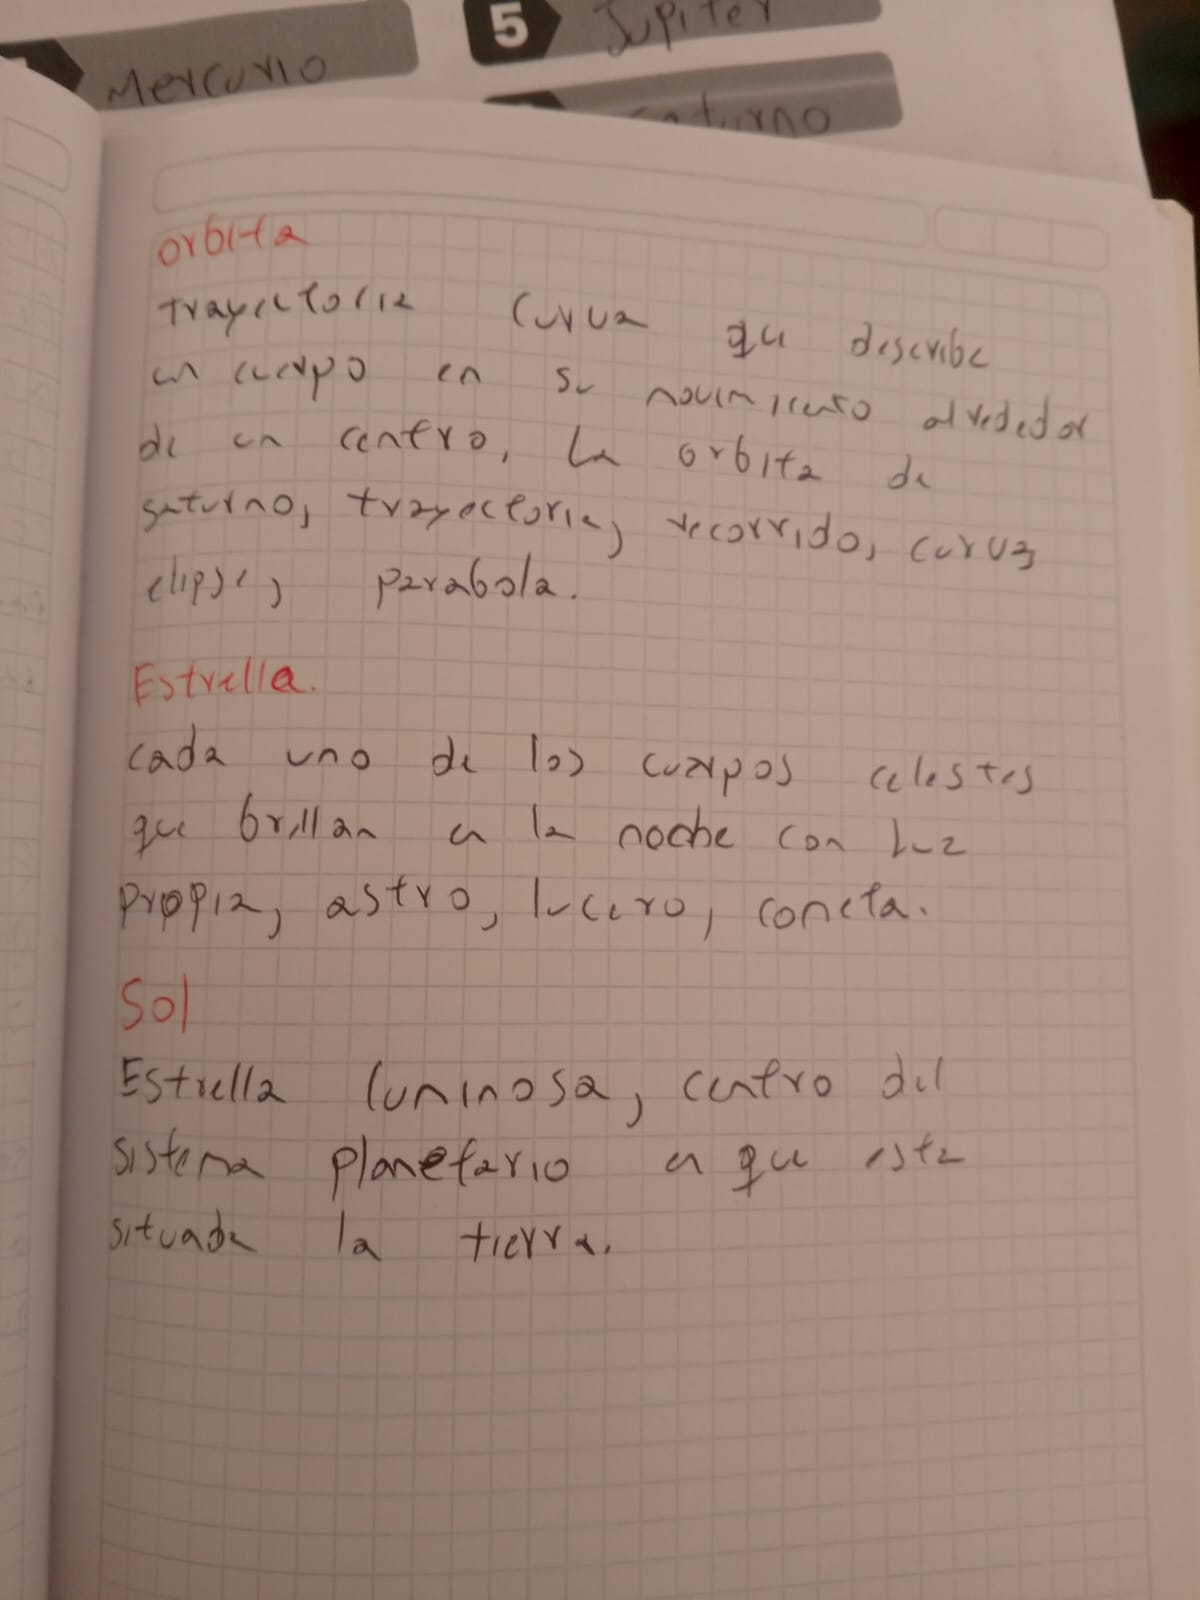 Mercurio
5 Jupiter
saturno
orbita
trayectoria curva que describe
un cuerpo en su movimiento alrededor
de un centro, la orbita de
saturno, trayectoria, recorrido, curva,
elipse, parabola.
Estrella.
cada uno de los cuerpos celestes
que brillan en la noche con luz
propia, astro, lucero, cometa.
Sol
Estrella luminosa, centro del
sistema planetario en que esta
situada la tierra.